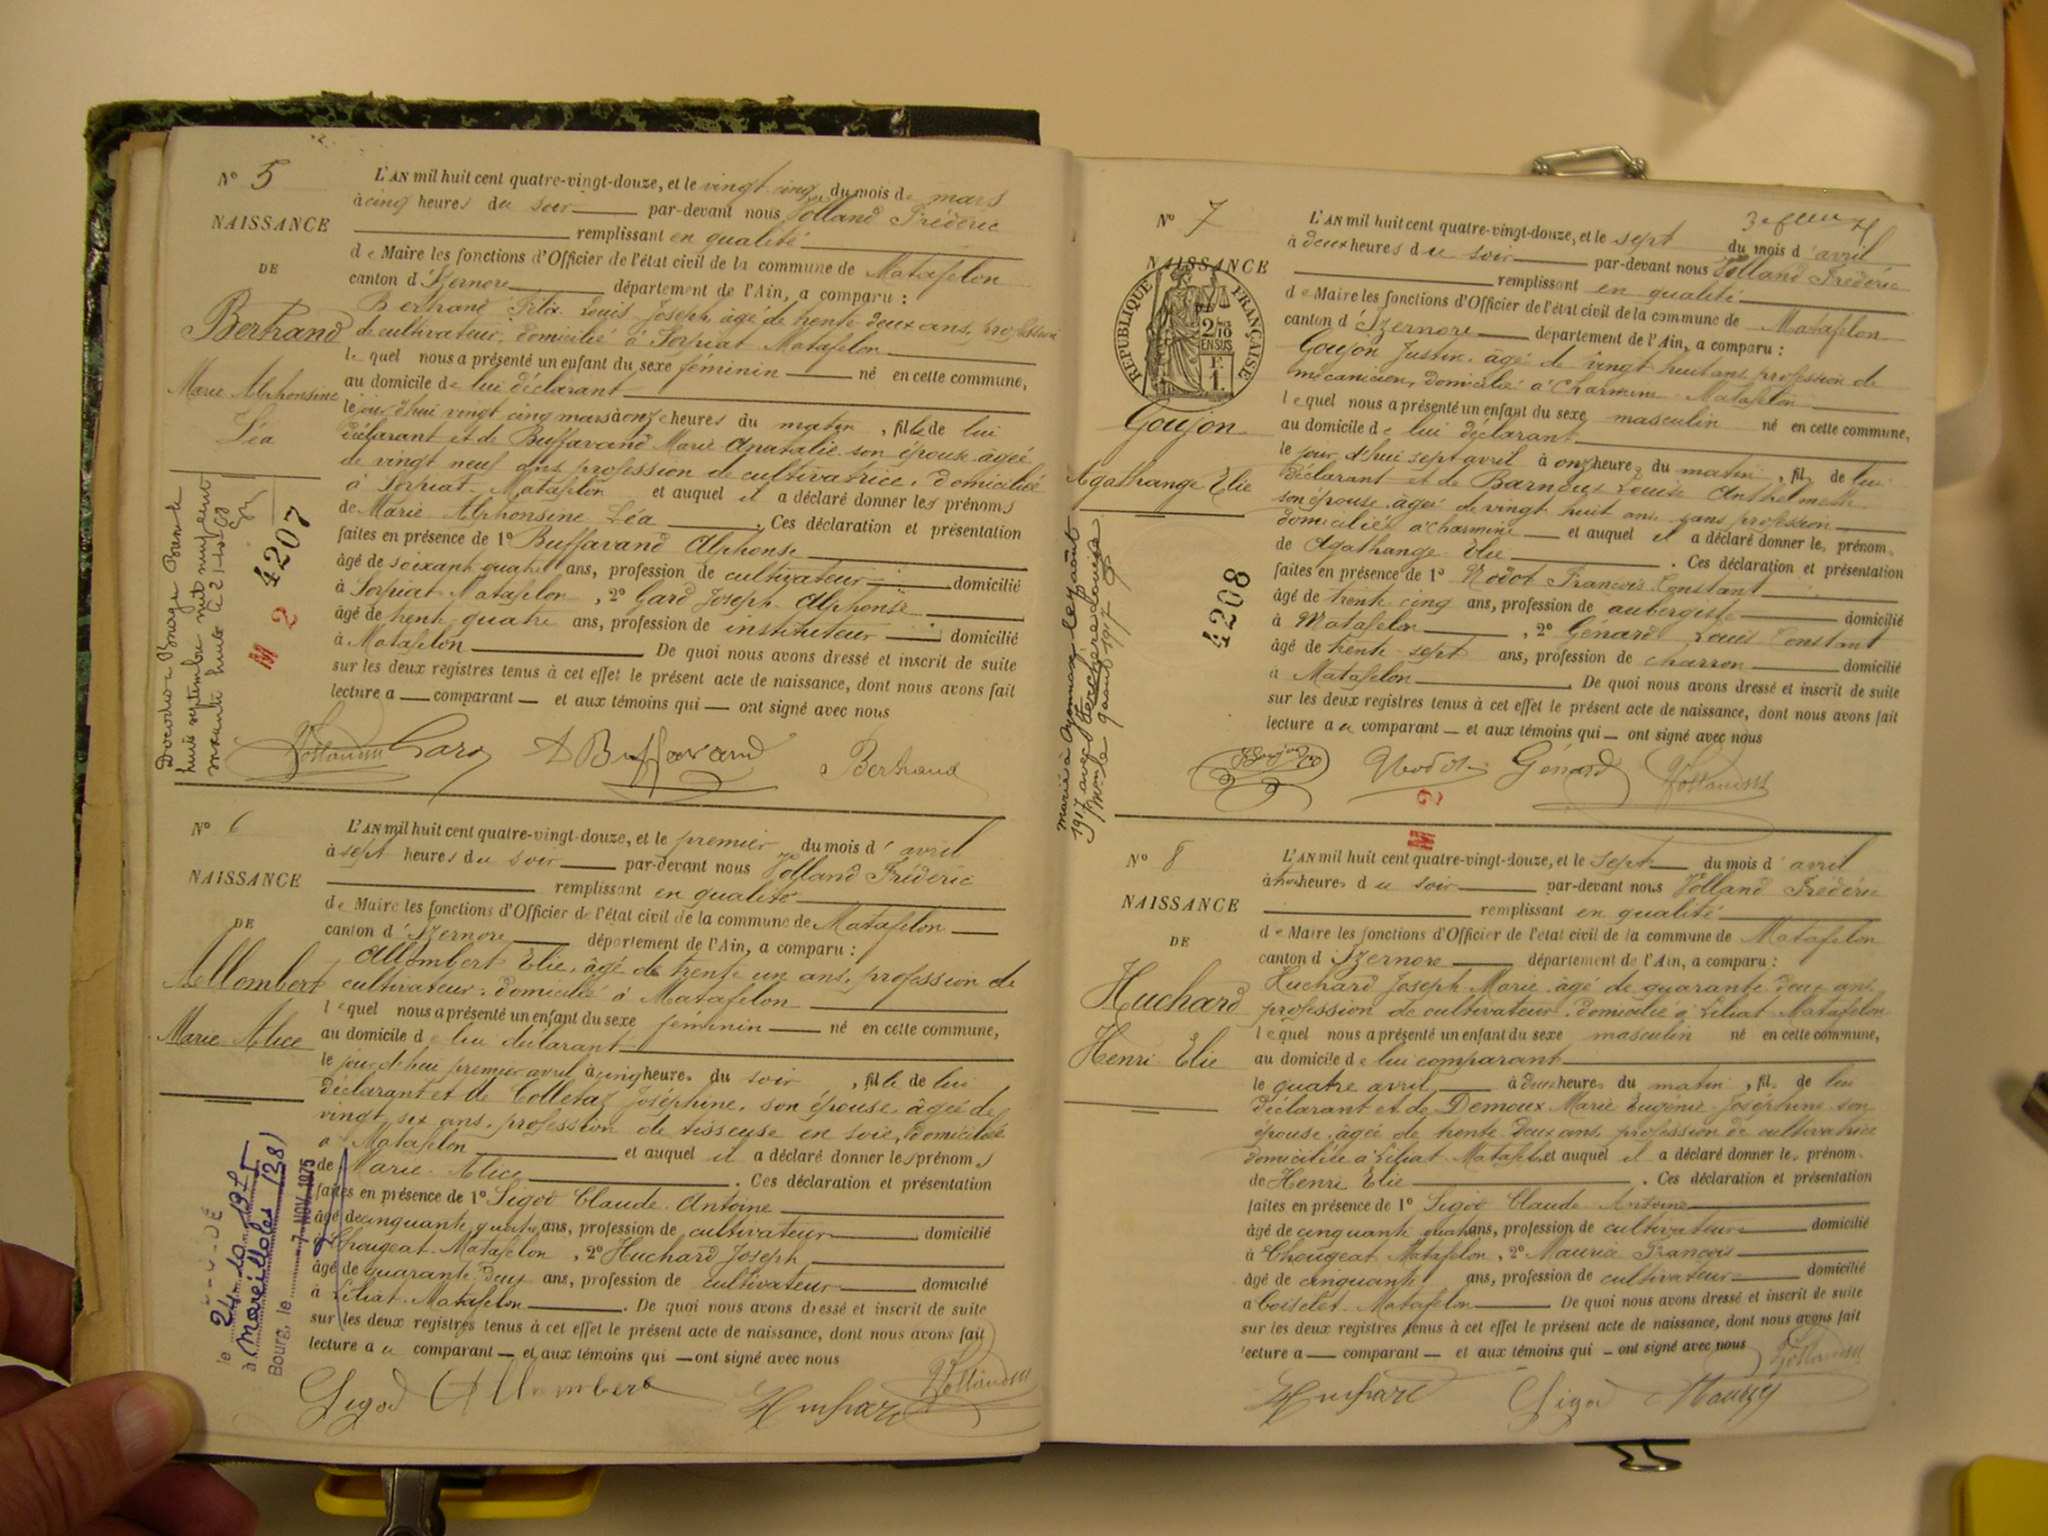 N° 5
NAISSANCE
DE
Bertrand
Marie Alphonsine
Léa
L'AN mil huit cent quatre-vingt-douze, et le vingt cinq du mois de mars
à cinq heures du soir par-devant nous Volland Frédéric
remplissant en qualité
de Maire les fonctions d'Officier de l'état civil de la commune de Matafelon
canton d'Izernore département de l'Ain, a comparu :
Bertrand Félix Louis Joseph, âgé de trente deux ans, profession
de cultivateur, domicilié à Matafelon
lequel nous a présenté un enfant du sexe féminin né en cette commune,
au domicile de lui déclarant
le jour d'hui vingt cinq mars à onze heures du matin, fille de lui
déclarant et de Buffavand Marie Anatalie son épouse âgée
de vingt neuf ans profession de cultivatrice, domiciliée
à Matafelon et auquel il a déclaré donner les prénoms
de Marie Alphonsine Léa. Ces déclaration et présentation
faites en présence de 1° Buffavand Alphonse
âgé de soixante quatre ans, profession de cultivateur domicilié
à Matafelon, 2° Gard Joseph Alphonse
âgé de trente quatre ans, profession de instituteur domicilié
à Matafelon. De quoi nous avons dressé et inscrit de suite
sur les deux registres tenus à cet effet le présent acte de naissance, dont nous avons fait
lecture a comparant et aux témoins qui ont signé avec nous
Volland Gard A Buffavand Bertrand
huit septembre mil neuf cent
4207
M 2
N° 6
NAISSANCE
DE
Allombert
Marie Alice
L'AN mil huit cent quatre-vingt-douze, et le premier du mois d'avril
à sept heures du soir par-devant nous Volland Frédéric
remplissant en qualité
de Maire les fonctions d'Officier de l'état civil de la commune de Matafelon
canton d'Izernore département de l'Ain, a comparu :
Allombert Elie, âgé de trente un ans, profession de
cultivateur, domicilié à Matafelon
lequel nous a présenté un enfant du sexe féminin né en cette commune,
au domicile de lui déclarant
le jour d'hui premier avril à cinq heures du soir, fille de lui
déclarant et de Colletaz Joséphine, son épouse, âgée de
vingt six ans, profession de tisseuse en soie, domiciliée
à Matafelon et auquel il a déclaré donner les prénoms
de Marie Alice. Ces déclaration et présentation
faites en présence de 1° Sigod Claude Antoine
âgé de cinquante quatre ans, profession de cultivateur domicilié
à Chougeat Matafelon, 2° Huchard Joseph
âgé de quarante deux ans, profession de cultivateur domicilié
à Liliat Matafelon. De quoi nous avons dressé et inscrit de suite
sur les deux registres tenus à cet effet le présent acte de naissance, dont nous avons fait
lecture au comparant et aux témoins qui ont signé avec nous
Sigod Allombert Huchard Volland
le 24
à Mareilloles (28)
Bourg, le 7 NOV. 1975
N° 7
NAISSANCE
RÉPUBLIQUE FRANÇAISE
Goujon
Agathange Elie
L'AN mil huit cent quatre-vingt-douze, et le sept du mois d'avril
à deux heures du soir par-devant nous Volland Frédéric
remplissant en qualité
de Maire les fonctions d'Officier de l'état civil de la commune de Matafelon
canton d'Izernore département de l'Ain, a comparu :
Goujon Justin, âgé de vingt huit ans profession de
mécanicien, domicilié à Charmine Matafelon
lequel nous a présenté un enfant du sexe masculin né en cette commune,
au domicile de lui déclarant
le jour d'hui sept avril à onze heures du matin, fils de lui
déclarant et de Barnoux Louise Anthelmette
son épouse, âgée de vingt huit ans sans profession
domiciliée à Charmine et auquel il a déclaré donner les prénoms
de Agathange Elie. Ces déclaration et présentation
faites en présence de 1° Nodot François Constant
âgé de trente cinq ans, profession de aubergiste domicilié
à Matafelon, 2° Génard Louis Constant
âgé de trente sept ans, profession de charron domicilié
à Matafelon. De quoi nous avons dressé et inscrit de suite
sur les deux registres tenus à cet effet le présent acte de naissance, dont nous avons fait
lecture au comparant et aux témoins qui ont signé avec nous
Goujon Nodot Génard Volland
Marié à août
1917 avec Louise
4208
M 2
N° 8
NAISSANCE
DE
Huchard
Henri Elie
L'AN mil huit cent quatre-vingt-douze, et le sept du mois d'avril
à trois heures du soir par-devant nous Volland Frédéric
remplissant en qualité
de Maire les fonctions d'Officier de l'état civil de la commune de Matafelon
canton d'Izernore département de l'Ain, a comparu :
Huchard Joseph Marie âgé de quarante deux ans
profession de cultivateur, domicilié à Liliat Matafelon
lequel nous a présenté un enfant du sexe masculin né en cette commune,
au domicile de lui comparant
le quatre avril à deux heures du matin, fils de lui
déclarant et de Demoux Marie Eugénie Joséphine son
épouse, âgée de trente deux ans, profession de cultivatrice
domiciliée à Liliat Matafelon et auquel il a déclaré donner les prénoms
de Henri Elie. Ces déclaration et présentation
faites en présence de 1° Sigod Claude Antoine
âgé de cinquante quatre ans, profession de cultivateur domicilié
à Chougeat Matafelon, 2° Maurice François
âgé de cinquante ans, profession de cultivateur domicilié
à Coiselet Matafelon. De quoi nous avons dressé et inscrit de suite
sur les deux registres tenus à cet effet le présent acte de naissance, dont nous avons fait
lecture a comparant et aux témoins qui ont signé avec nous
Huchard Sigod Volland